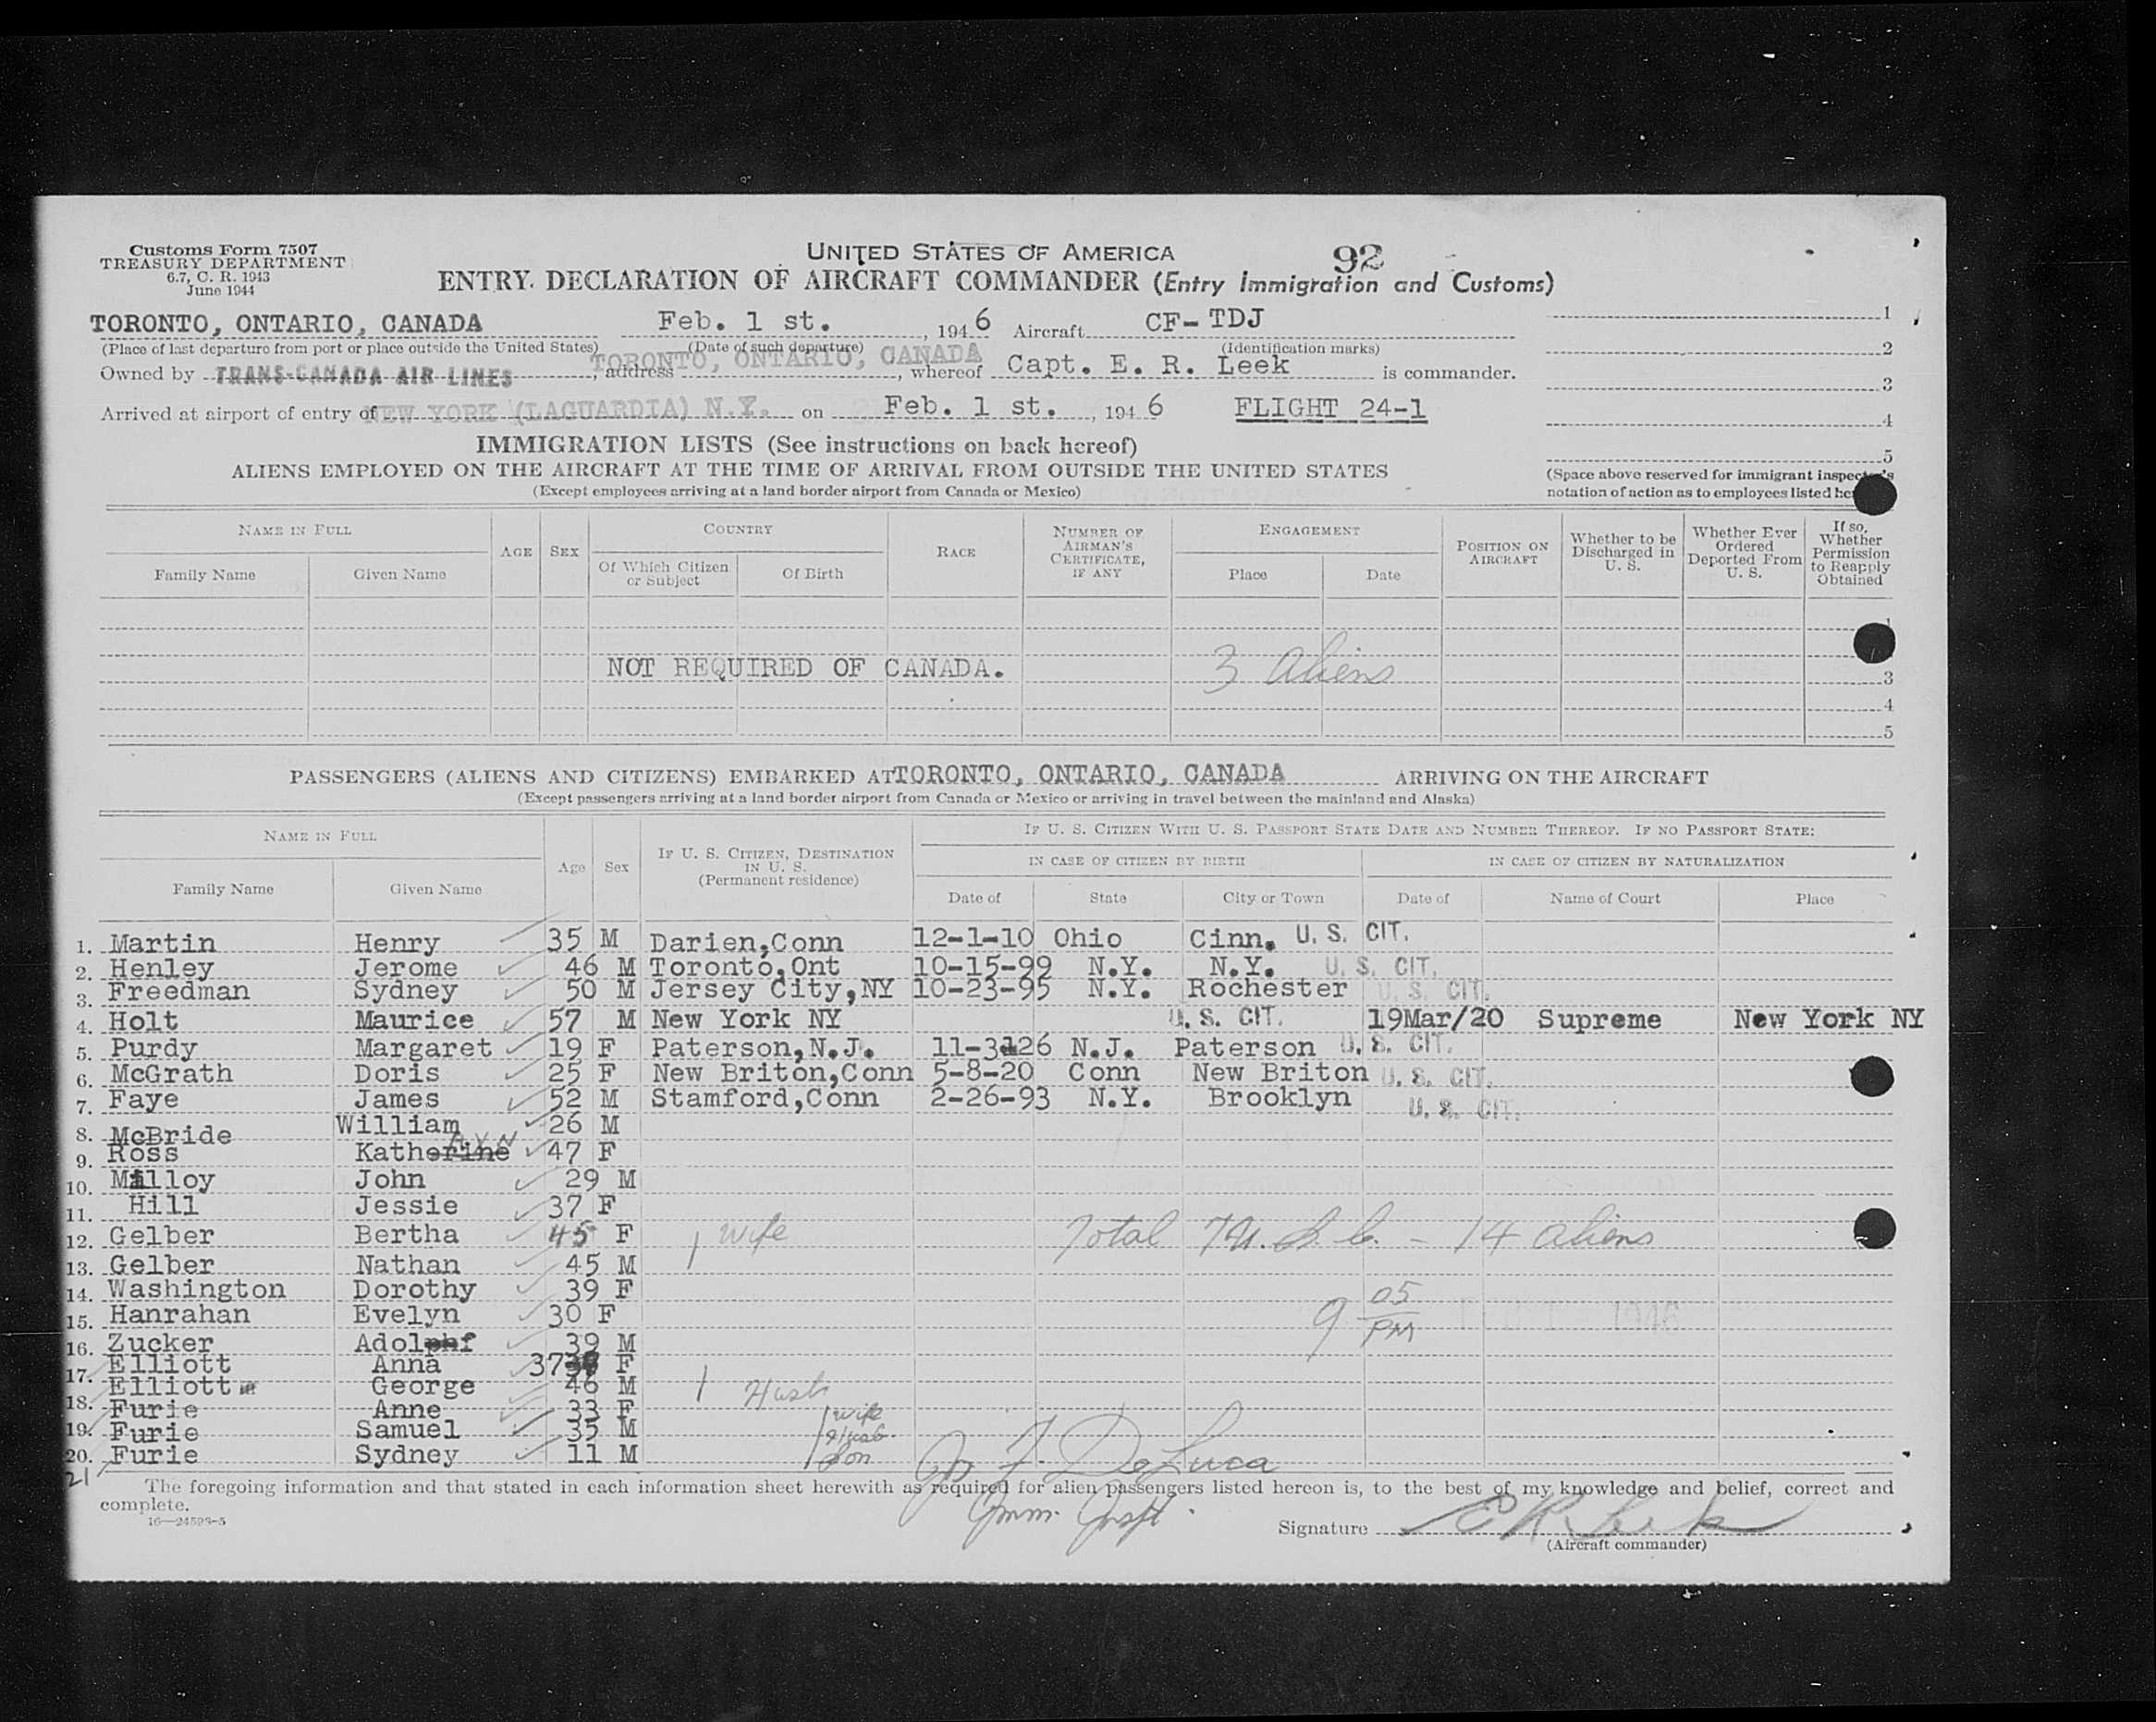 Customs Form 7507
TREASURY DEPARTMENT
6.7, C. R. 1943
June 1944
UNITED STATES OF AMERICA 92
ENTRY DECLARATION OF AIRCRAFT COMMANDER (Entry Immigration and Customs)
TORONTO, ONTARIO, CANADA Feb. 1 st. , 194 6 Aircraft CF-TDJ 1
(Place of last departure from port or place outside the United States) (Date of such departure) (Identification marks) 2
Owned by TRANS-CANADA AIR LINES , address TORONTO, ONTARIO, CANADA , whereof Capt. E. R. Leek is commander. 3
Arrived at airport of entry of NEW YORK (LAGUARDIA) N.Y. on Feb. 1 st. , 194 6 FLIGHT 24-1 4
IMMIGRATION LISTS (See instructions on back hereof)
5
ALIENS EMPLOYED ON THE AIRCRAFT AT THE TIME OF ARRIVAL FROM OUTSIDE THE UNITED STATES
(Space above reserved for immigrant inspector's
(Except employees arriving at a land border airport from Canada or Mexico) notation of action as to employees listed
NAME IN FULL AGE SEX COUNTRY RACE NUMBER OF AIRMAN'S CERTIFICATE, IF ANY ENGAGEMENT POSITION ON AIRCRAFT Whether to be Discharged in U. S. Whether Ever Ordered Deported From U. S. If so, Whether Permission to Reapply Obtained
Family Name Given Name Of Which Citizen or Subject Of Birth Place Date
NOT REQUIRED OF CANADA. 3 Aliens 3
4
5
PASSENGERS (ALIENS AND CITIZENS) EMBARKED AT TORONTO, ONTARIO, CANADA ARRIVING ON THE AIRCRAFT
(Except passengers arriving at a land border airport from Canada or Mexico or arriving in travel between the mainland and Alaska)
NAME IN FULL Age Sex IF U. S. CITIZEN, DESTINATION IN U. S. (Permanent residence) IF U. S. CITIZEN WITH U. S. PASSPORT STATE DATE AND NUMBER THEREOF. IF NO PASSPORT STATE:
IN CASE OF CITIZEN BY BIRTH IN CASE OF CITIZEN BY NATURALIZATION
Family Name Given Name Date of State City or Town Date of Name of Court Place
1. Martin Henry 35 M Darien,Conn 12-1-10 Ohio Cinn. U. S. CIT.
2. Henley Jerome 46 M Toronto,Ont 10-15-99 N.Y. N.Y. U. S. CIT.
3. Freedman Sydney 50 M Jersey City,NY 10-23-95 N.Y. Rochester U. S. CIT.
4. Holt Maurice 57 M New York NY U. S. CIT. 19Mar/20 Supreme New York NY
5. Purdy Margaret 19 F Paterson,N.J. 11-3-26 N.J. Paterson U. S. CIT.
6. McGrath Doris 25 F New Briton,Conn 5-8-20 Conn New Briton U. S. CIT.
7. Faye James 52 M Stamford,Conn 2-26-93 N.Y. Brooklyn U. S. CIT.
8. McBride William 26 M
9. Ross Katherine RYN 47 F
10. Malloy John 29 M
11. Hill Jessie 37 F
12. Gelber Bertha 45 F wife Total 7 U.S.C. - 14 aliens
13. Gelber Nathan 45 M
14. Washington Dorothy 39 F
15. Hanrahan Evelyn 30 F 9 05 PM 1946
16. Zucker Adolf 39 M
17. Elliott Anna 37 F
18. Elliott George 46 M Husb
19. Furie Anne 33 F wife
20. Furie Samuel 35 M Husb.
21 Furie Sydney 11 M Son
F. DeLuca
The foregoing information and that stated in each information sheet herewith as required for alien passengers listed hereon is, to the best of my knowledge and belief, correct and
complete.
Imm. Inspt.
16—24593-5
Signature E R Leek
(Aircraft commander)